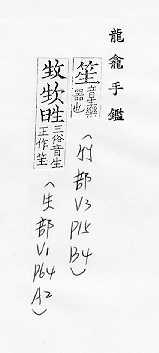 龍龕手鑑
笙音生樂器也
(竹部V3
P15
B4)
𤯓𤯔甠三俗音生正作笙
(生部V1
P64
A2)